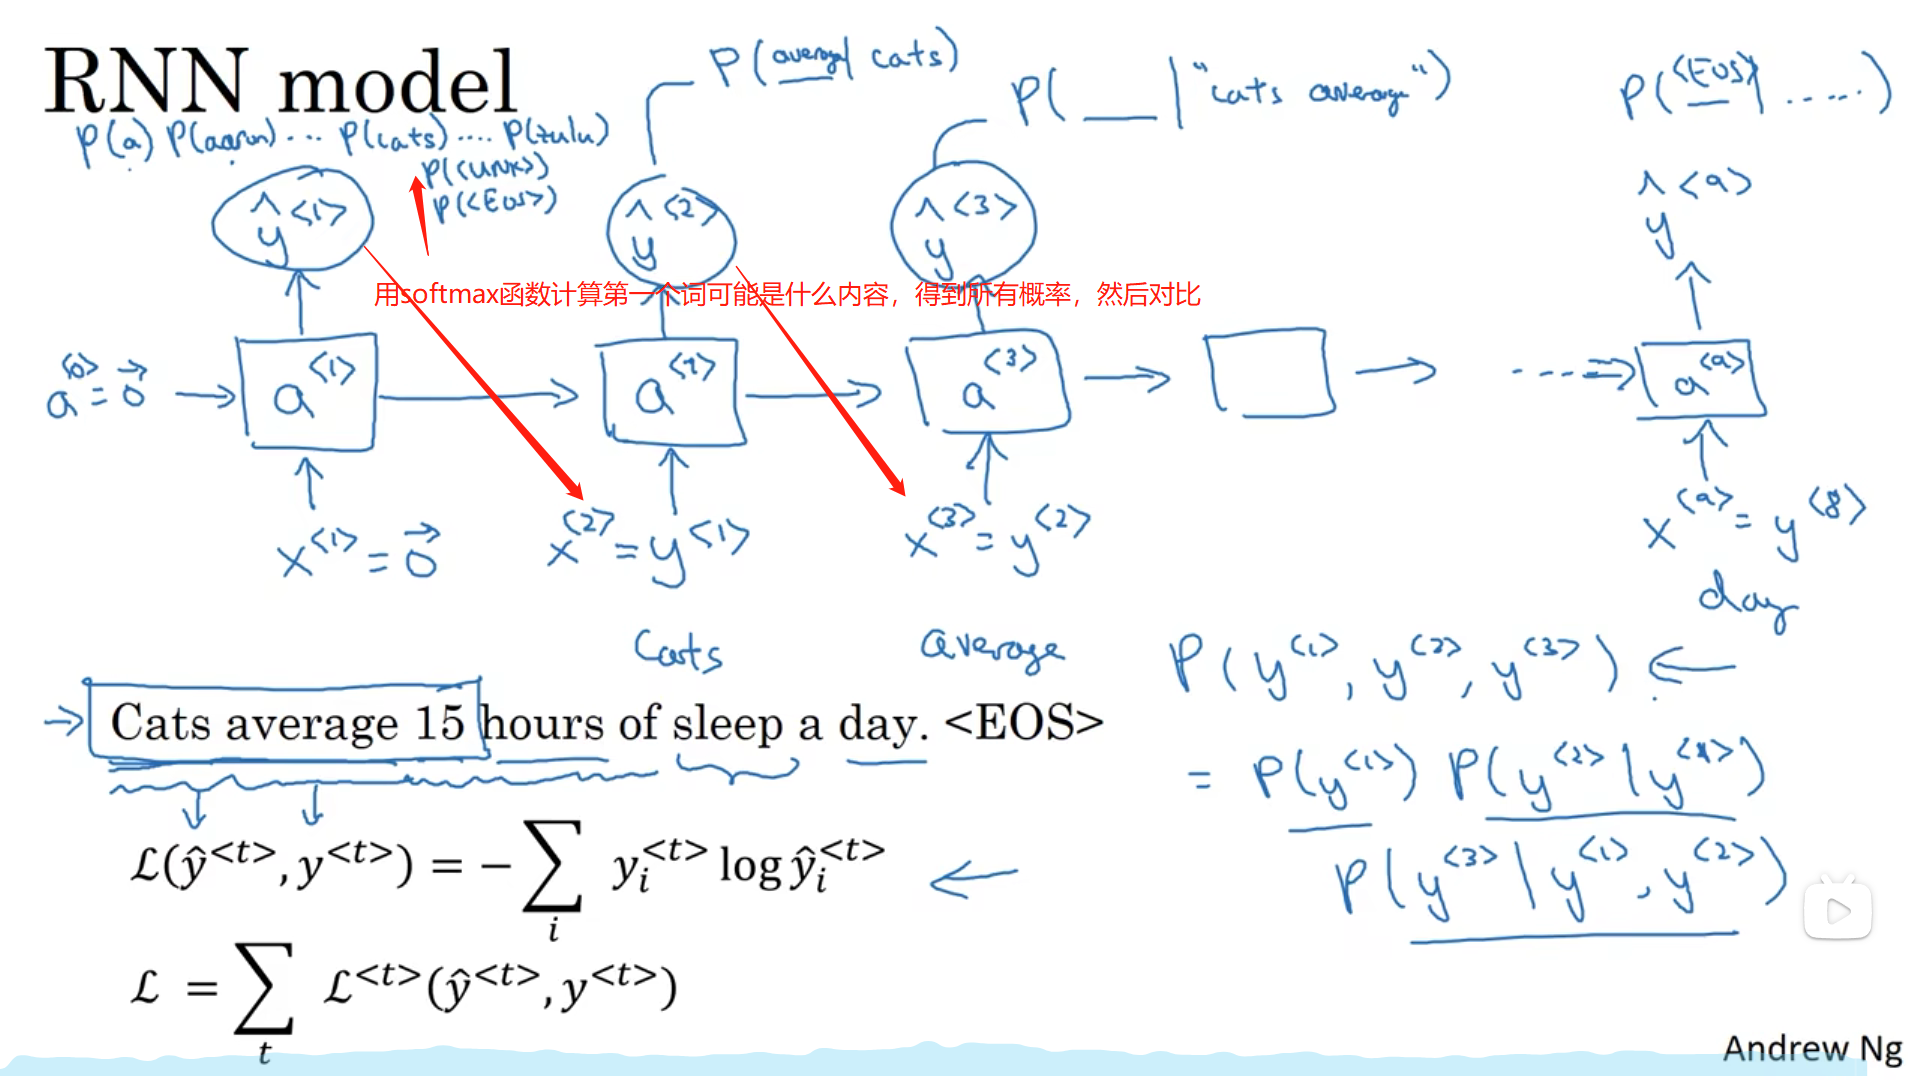 RNN model
P(average| cats)
P( ___ | "cats average")
P(<EOS>| ......)
P(a) P(aaron) ... P(cats) .... P(zulu)
P(<UNK>)
P(<EOS>)
ŷ<1>
ŷ<2>
ŷ<3>
ŷ<9>
用softmax函数计算第一个词可能是什么内容，得到所有概率，然后对比
a<0> = 0⃗
a<1>
a<2>
a<3>
a<9>
x<1> = 0⃗
x<2> = y<1>
x<3> = y<2>
x<9> = y<8>
Cats
average
day
Cats average 15 hours of sleep a day. <EOS>
P(y<1>, y<2>, y<3>)
= P(y<1>) P(y<2> | y<1>)
P(y<3> | y<1>, y<2>)
ℒ(ŷ<t>, y<t>) = − ∑i yi<t> log ŷi<t>
ℒ = ∑t ℒ<t>(ŷ<t>, y<t>)
Andrew Ng